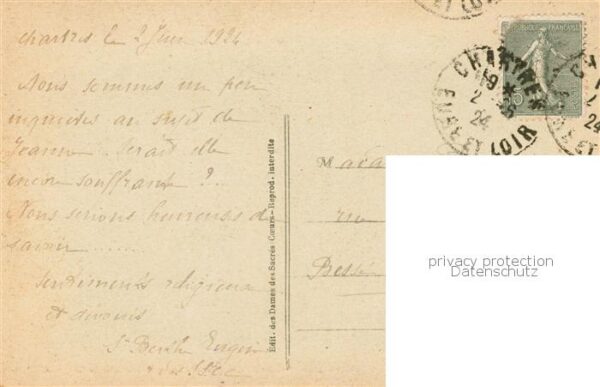 Chartres le 2 Juin 1924
Nous sommes un peu
inquiètes au sujet de
Jeanne. Serait elle
encore souffrante ?..
Nous serions heureuses de
savoir ......
sentiments religieux
et dévoués
Sr Berthe
Edit. des Dames des Sacrés Cœurs - Reprod. interdite
REPUBLIQUE FRANÇAISE
CHARTRES
2
24
EURE ET LOIR
ET LOIR
CH
24
Mada
ru
Bessé
privacy protection
Datenschutz